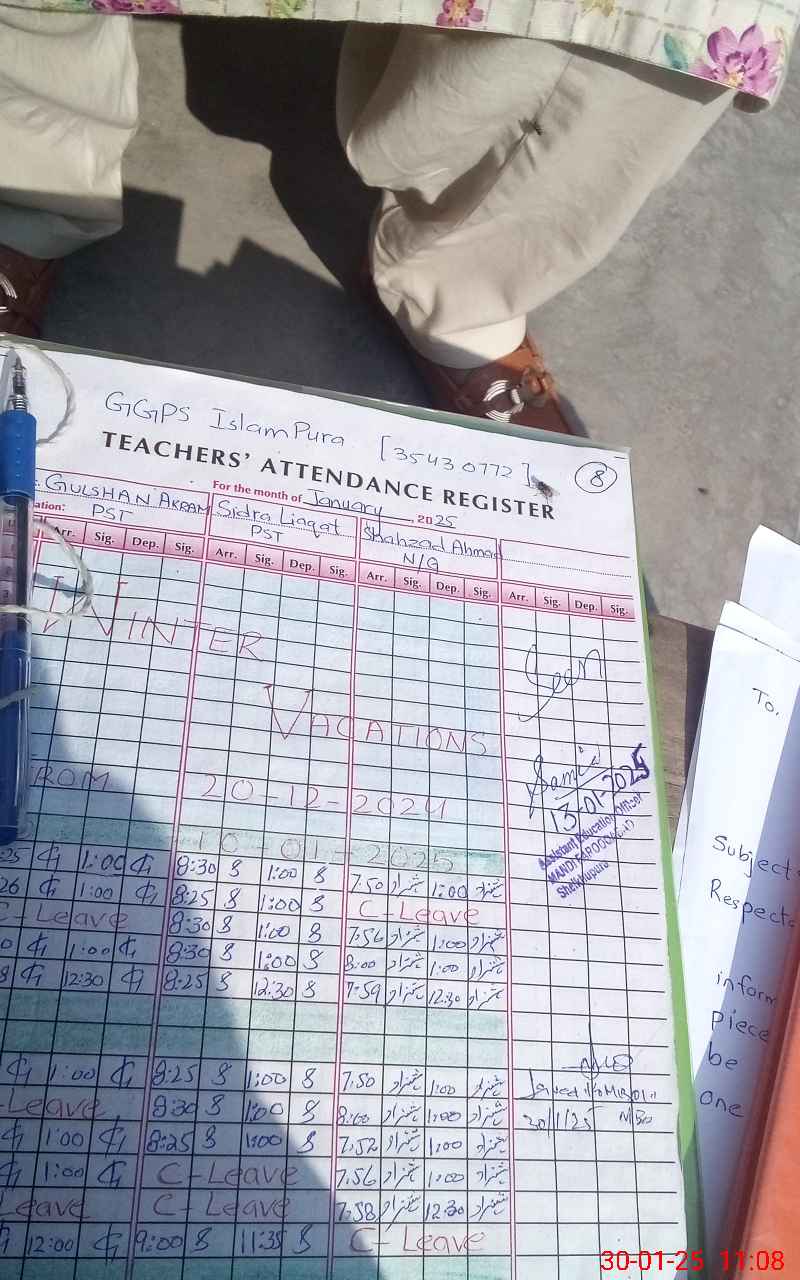 GGPS IslamPura [35430772] 8
TEACHERS' ATTENDANCE REGISTER
For the month of January, 2025
GULSHAN AKRAM Sidra Liaqat Shahzad Ahmad
ation: PST PST N/Q
Arr. Sig. Dep. Sig. Arr. Sig. Dep. Sig. Arr. Sig. Dep. Sig. Arr. Sig. Dep. Sig.
WINTER
Seen
VACATIONS
Samia
ROM 20-12-2024
13-01-2025
10-01-2025
Assistant Education Officer
Sheikhupura
:25 G 1:00 G 8:30 S 1:00 S 7:50 شہزاد 1:00 شہزاد
26 G 1:00 G 8:25 S 1:00 S C-Leave
C-Leave 8:30 S 1:00 S 7:56 شہزاد 1:00 شہزاد
0 G 1:00 G 8:30 S 1:00 S 8:00 شہزاد 1:00 شہزاد
8 G 12:30 G 8:25 S 12:30 S 7:59 شہزاد 12:30 شہزاد
G 1:00 G 8:25 S 1:00 S 7:50 شہزاد 1:00 شہزاد
-Leave 8:30 S 1:00 S 8:00 شہزاد 1:00 شہزاد
30/1/25
G 1:00 G 8:25 S 1:00 S 7:52 شہزاد 1:00 شہزاد
G 1:00 G C-Leave 7:56 شہزاد 1:00 شہزاد
Leave C-Leave 7:58 شہزاد 12:30 شہزاد
G 12:00 G 9:00 S 11:35 S C-Leave
To,
Subject:
Respecte
inform
piece
be
one
30-01-25 11:08